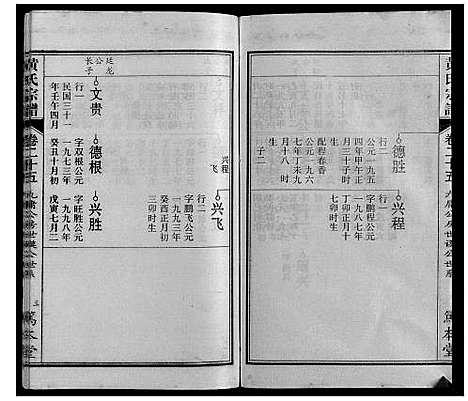 黄氏宗谱
卷二十五
九牖公房世谟公世系
笃本堂
德胜
行二
公元一九五
四年甲午正
月三十子时
配程春香
公元一九五
七年丁未九
子二
兴程
飞
兴程
行一
字鹏程公元
一九八七年
丁卯正月十
七卯时生
兴飞
行二
字鹏飞公元
一九九三年
癸酉正月初
三卯时生
廷龙
公
长子
文贵
行一
民国三十一
年壬午四月
德根
字双根公元
一九七三年
癸丑十月初
兴胜
字旺胜公元
一九九八年
戊寅七月二
黄氏宗谱
卷二十五
三